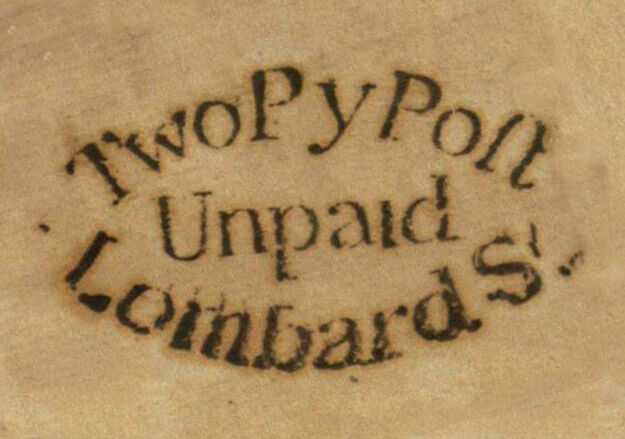 Two Py Poſt
Unpaid
Lombard S.